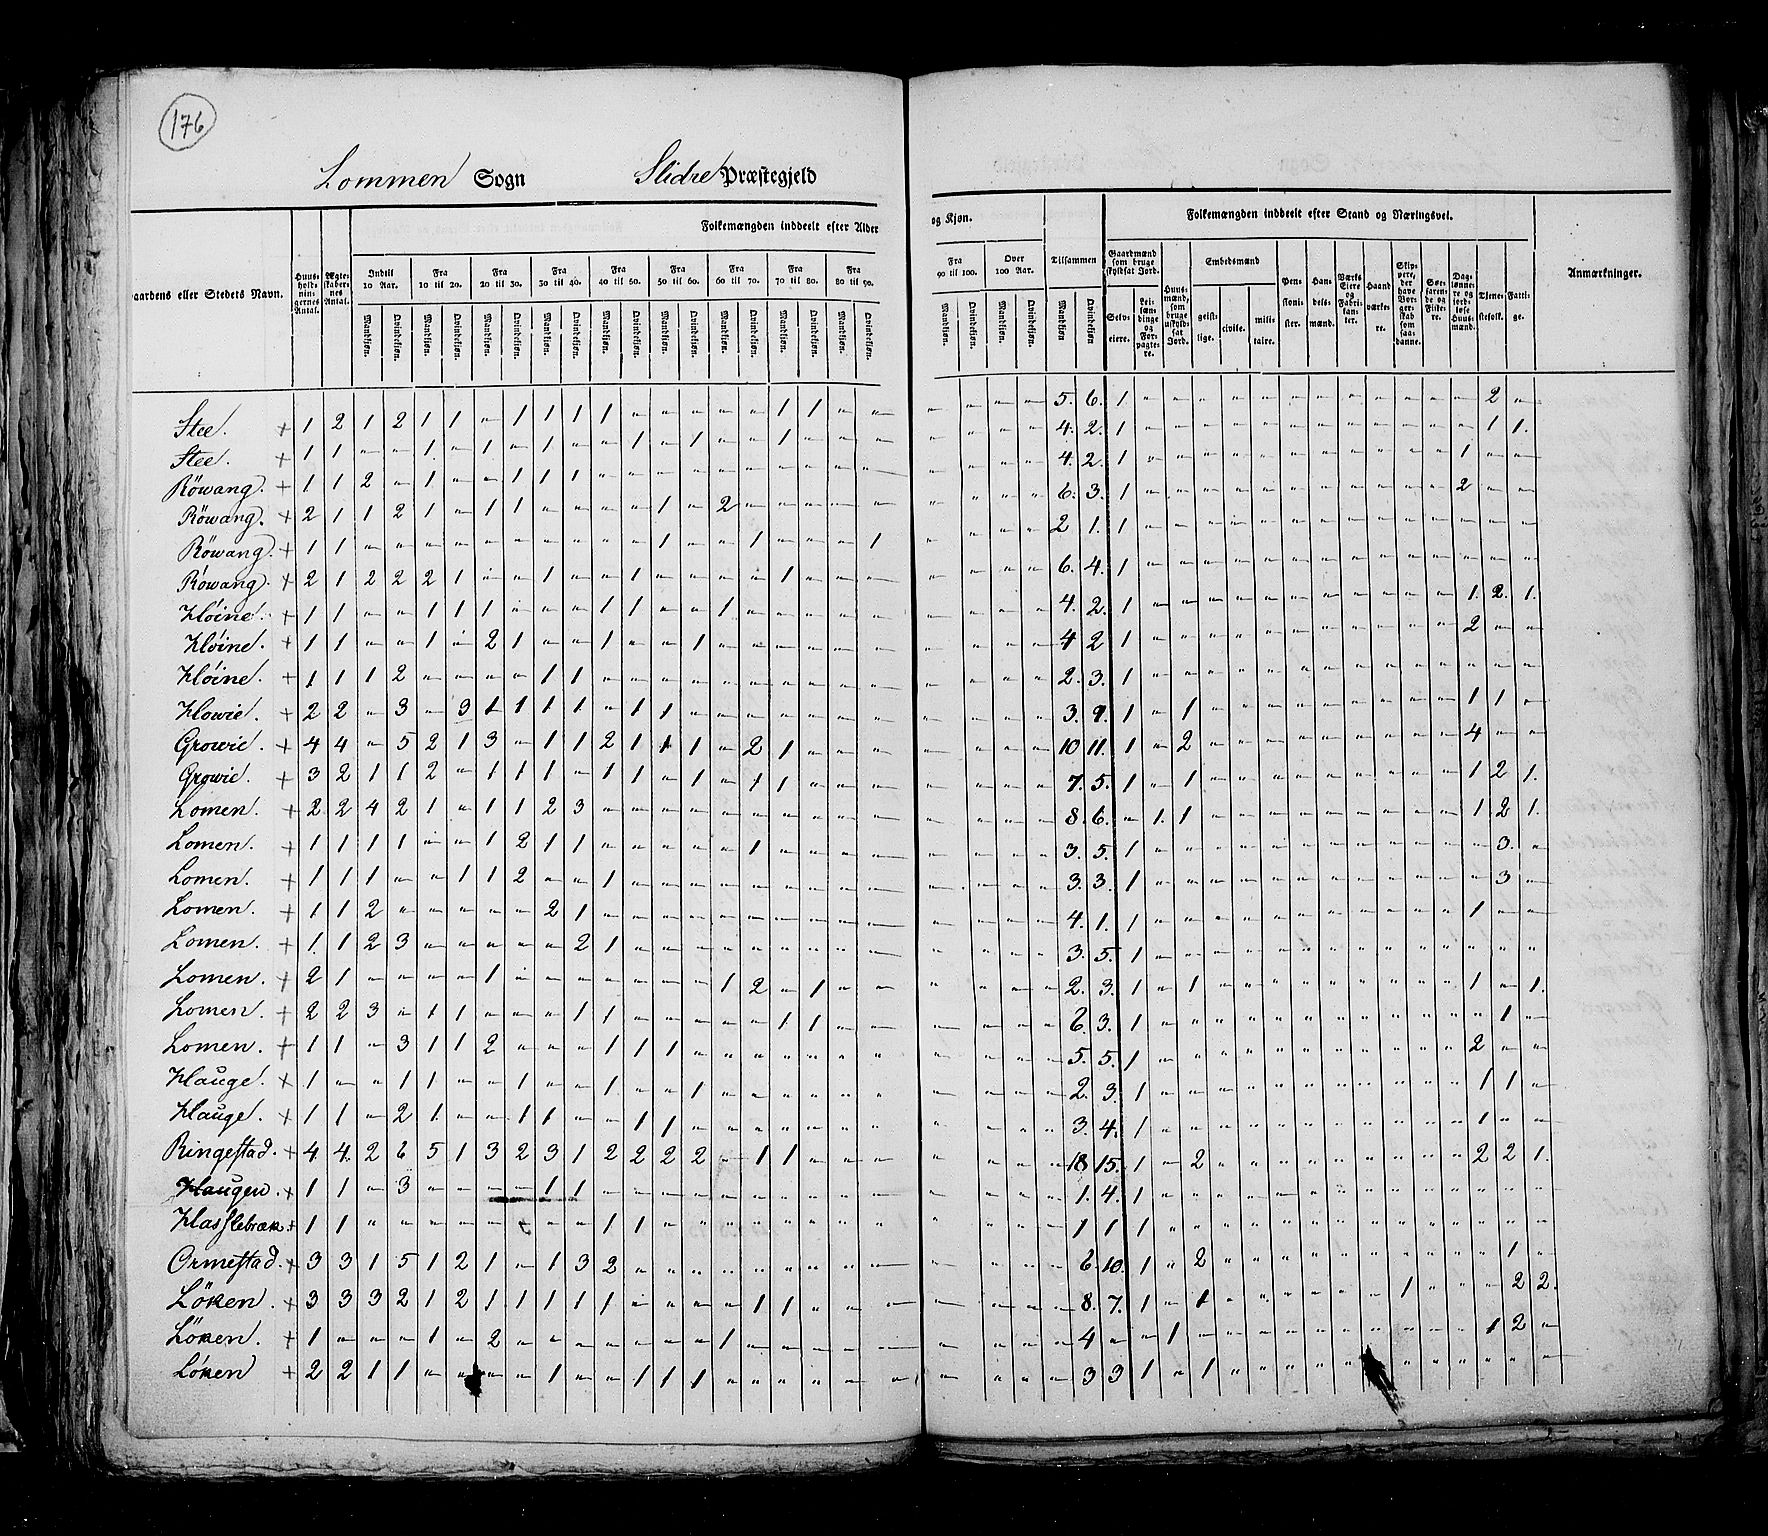 176
Lommen Sogn Slidre Præstegjeld
aardens eller Stedets Navn.
Huus-holdnin-gernes Antal.
Ægte-skaber-nes Antal.
Folkemængden inddeelt efter Alder og Kjøn.
Indtil 10 Aar.
Fra 10 til 20.
Fra 20 til 30.
Fra 30 til 40.
Fra 40 til 50.
Fra 50 til 60.
Fra 60 til 70.
Fra 70 til 80.
Fra 80 til 90.
Fra 90 til 100.
Over 100 Aar.
Tilsammen
Mandkjøn. Qvindekjøn.
Folkemængden inddeelt efter Stand og Næringsvei.
Gaardmænd som bruge skyldsat Jord.
Selv-eiere.
Lei-lændinge og For-pagte-re.
Huus-mænd, som bruge uskyld-sat Jord.
Embedsmænd
geist-lige.
civile.
mili-taire.
Pen-sioni-ster.
Han-dels-mænd.
Værks Eiere og Fabri-kan-ter.
Haandværke-re.
Søe-farende og Fiske-re.
Tjene-stefolk.
Fatti-ge.
Anmærkninger.
Stee. + 1 2 1 2 1 1 - 1 1 1 1 - - - - - 1 1 - - - - - - 5. 6. 1 2
Stee. + 1 1 4. 2. 1 1 1.
Röwang. + 1 1 2 - 1 - - 1 1 1 4. 2. 1 1
Röwang. + 2 1 1 2 1 - 1 1 - - - - 1 - 2 6. 3. 1 2
Röwang. + 1 1 2 1. 1
Röwang. + 2 1 2 2 2 1 - - 1 - - 1 - - - - 1 6. 4. 1
Klöine. + 1 1 - - 1 1 1 - - - 1 1 - - 1 4. 2. 1 1. 2. 1.
Klöine. + 1 1 - - 1 - 2 1 - - 1 - - 1 4 2 1 2
Klöine. + 1 1 1 2 - - - - 1 1 2. 3. 1
Klowie. + 2 2 - 3 - 3 1 1 1 1 - 1 1 3. 9. 1 - 1 1 1
Growie. + 4 4 - 5 2 1 3 - 1 1 2 1 1 1 - 2 1 10 11. 1 - 2 4
Growie. + 3 2 1 1 2 - 1 1 1 - 1 1 - 1 - 1 1 7. 5. 1 - 1 1 2 1.
Lomen. + 2 2 4 2 1 - 1 1 2 3 8. 6. - 1. 1 1 2 1.
Lomen. + 1 1 1 1 - - 1 2 1 1 - - - - - 1 3. 5. 1 3.
Lomen. + 1 1 1 - - 1 1 2 - - 1 3. 3. 1 3
Lomen. + 1 1 2 - - - - - 2 1 4. 1. 1 1
Lomen. + 1 1 2 3 - - - - - 2 1 3. 5. 1
Lomen. + 2 1 - - - - 1 - - - - - - - 1 2 - 1 2. 3. 1 - 1 1 - 1.
Lomen. + 2 2 3 - 1 1 - - - 1 1 - - - - - 1 1 6. 3. 1 1
Lomen. + 1 1 - 3 1 1 2 - - - 1 1 1 5. 5. 1 2
Klauge. + 1 - - 1 1 - - 1 - - 1 - - 1 2. 3. 1 1 1
Klauge. + 1 1 - 2 1. - - 1 1 - - 1 1 3. 4. 1 1
Ringestad. + 4 4. 2 6 5 1 3 2 3 1 2 2 2 2 - 1 1 18 15. 1 - 2 2 2 1.
Klaugen. + 1 1 - 3 - - - - 1 1 1. 4. 1
+ 1 1 - - - - - - - - 1 1 1 1 1
Ormestad. + 3 3 1 5 1 2 1 - 1 3 2 6. 10. 1 - 2 1
Löken. + 3 3 3 2 1 2 1 1 1 1 1 - - - - 1 1 8. 7. 1 - 1 1 2 2.
Löken. + 1 - - - 1 - 2 - - - - - - - 1 4 - - 1 1 2
Löken + 2 2 1 1 - - - - 1 - - 1 1 1 3 3 1 - 1